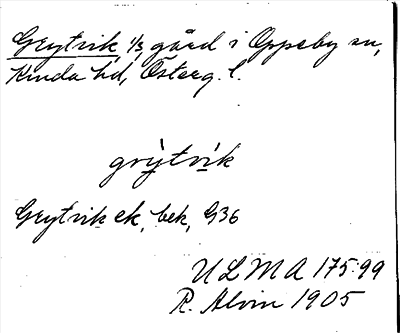 Grytvik 1/3, gård i Oppeby sn,
Kinda hd, Österg. l.
grỳtvík
Grytvik ek, bek, G36
ULMA 175:99
R. Alvin 1905